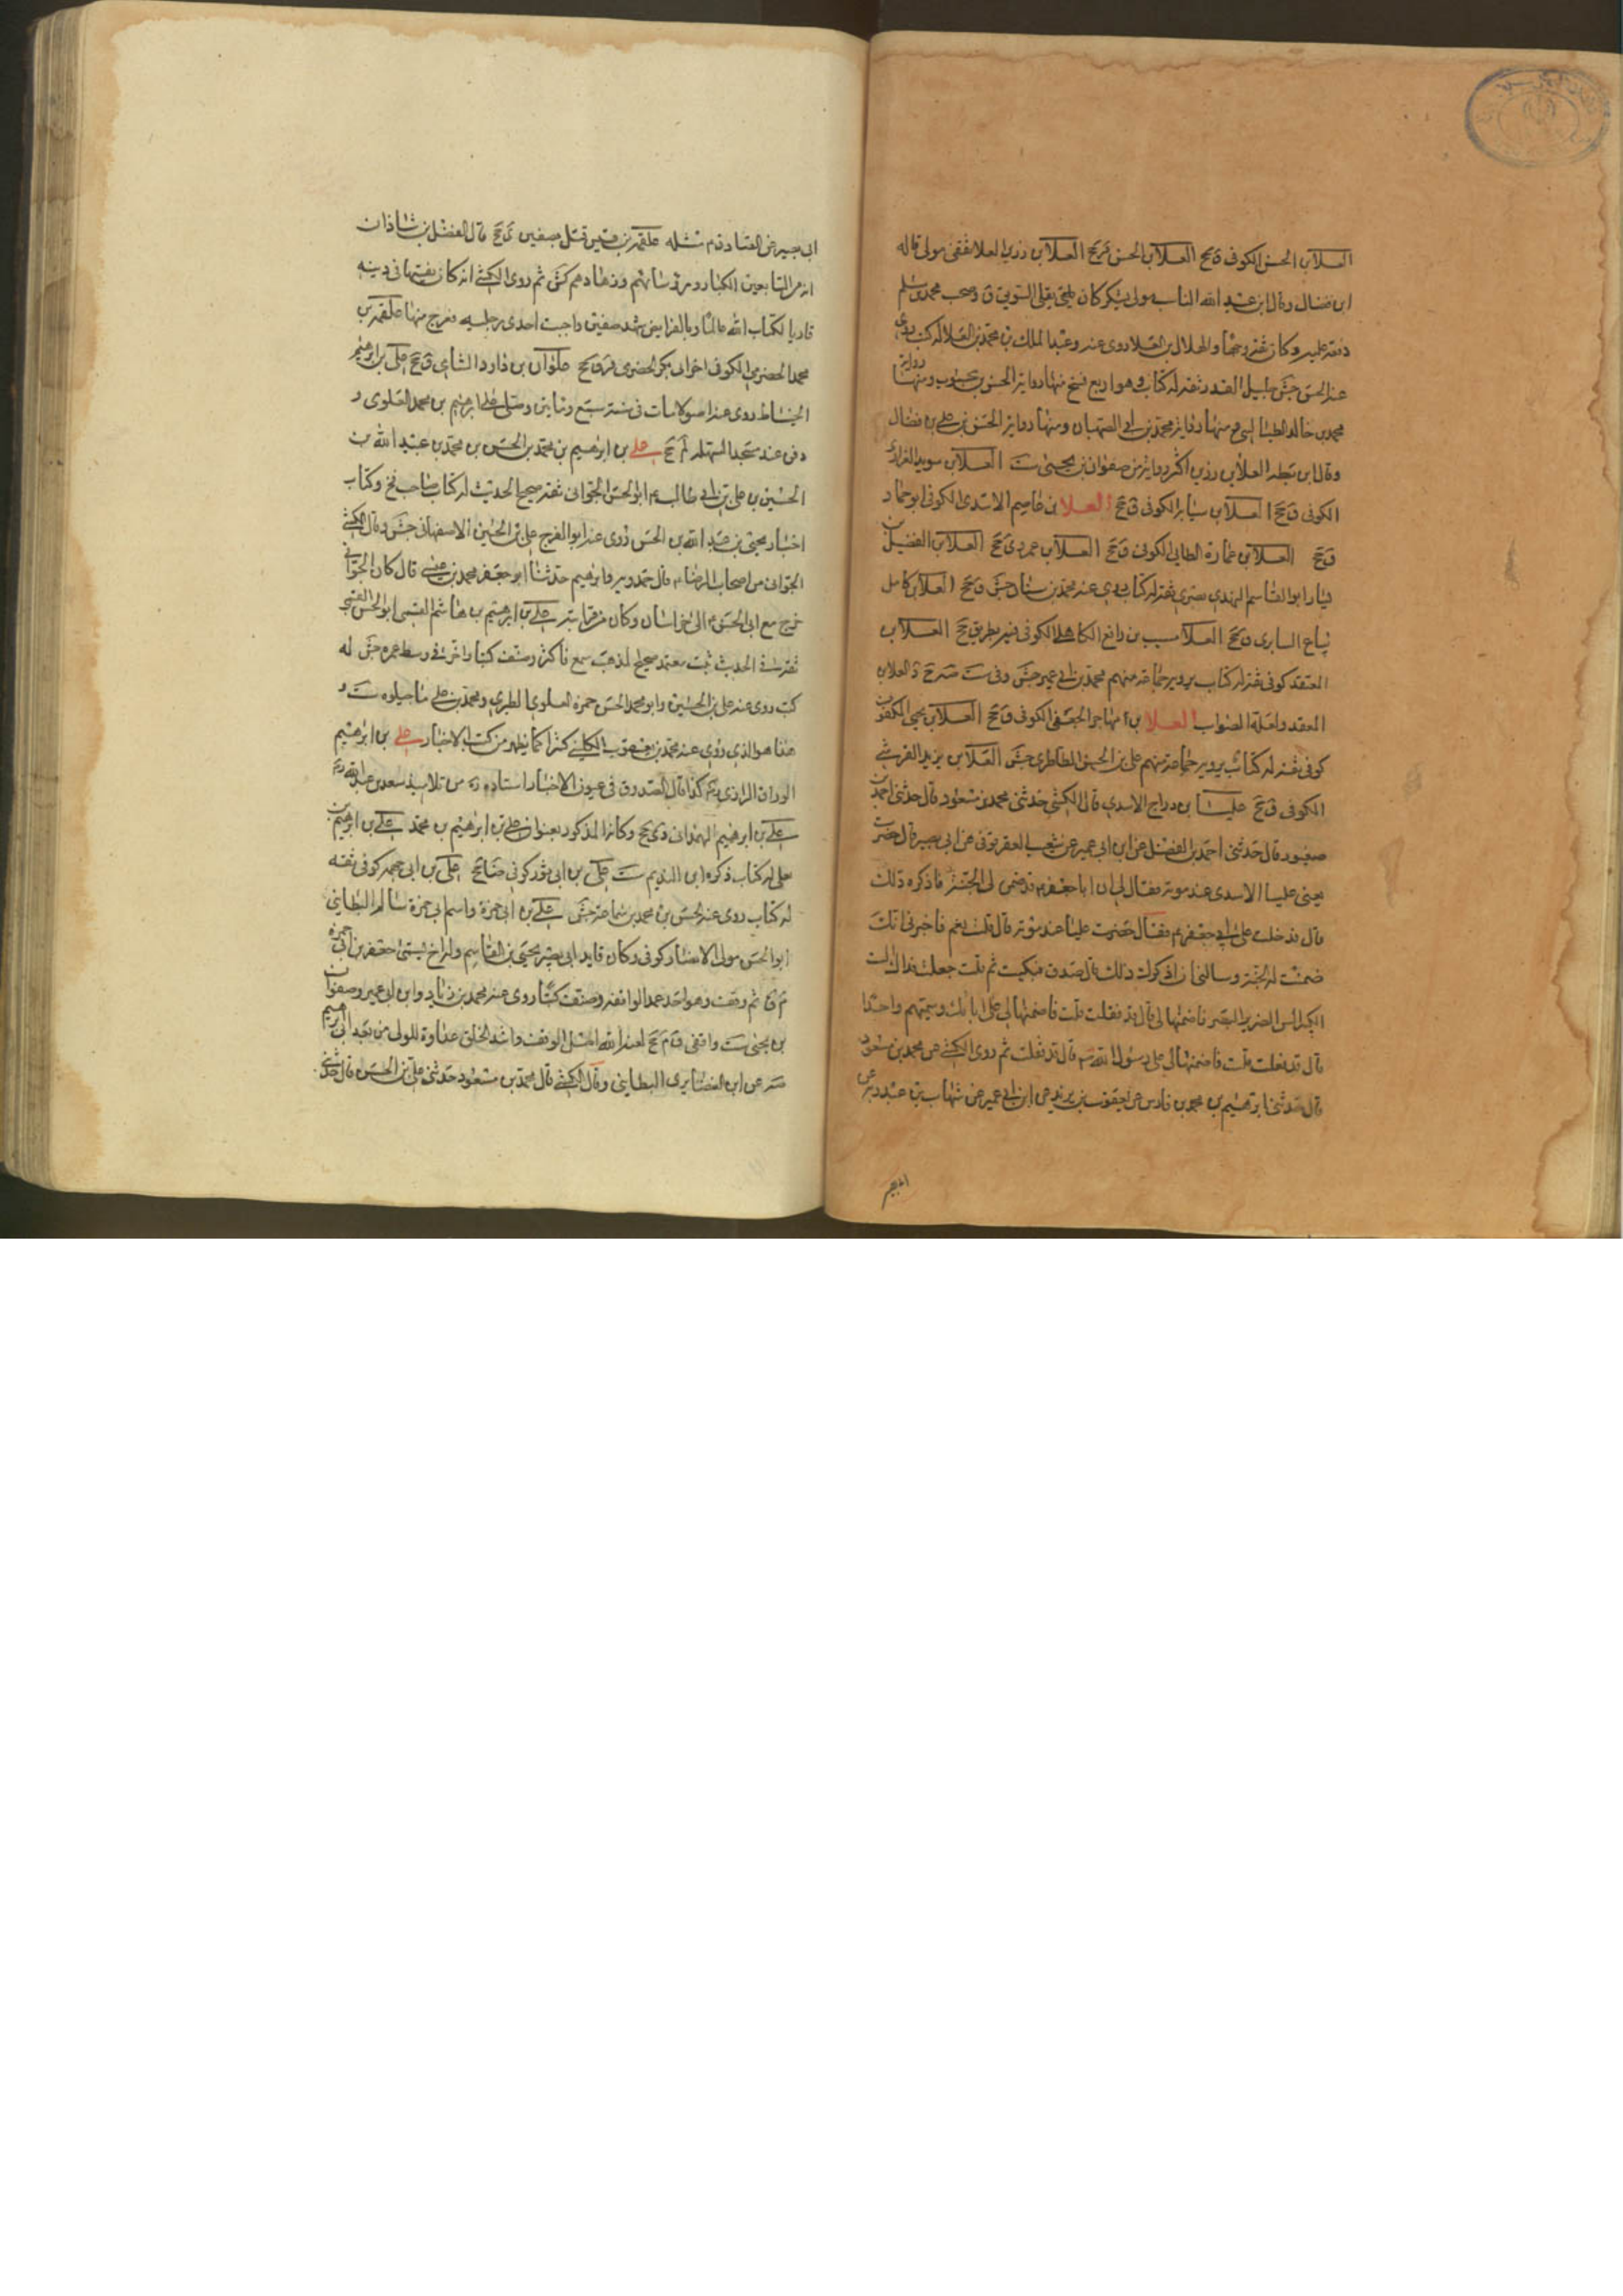 العلا بن الحسن الكوفى ق جخ العلا بن الحسن قر جخ العلا بن رزين العلا ثقفى مولى قاله
ابن فضال وقال ابن عبد الله الناب مولى يشكر كان يقلى السويق ق وصحب محمد بن مسلم
وفقه عليه وكان ثقة وجها والهلال بن العلا روى عنه وعبد الملك بن محمد بن العلا له كتب روى
عنه الحسن جش جليل القدر ثقة له كتاب وهو اربع نسخ منها رواية الحسن بن محبوب ومنها رواية
محمد بن خالد الطيالسى ومنها رواية محمد بن ابى الصهبان ومنها رواية الحسن بن على بن فضال
وقال ابن بطه العلا بن رزين اكثر رواية من صفوان بن يحيى ست العلا بن سويد الفزارى
الكوفى ق جخ العلا بن سيابه الكوفى ق جخ العلا بن عاصم الاسدى الكوفى ابو حماد
ق جخ العلا بن عمارة الطائى الكوفى ق جخ العلا بن عمرو ى جخ العلا بن الفضيل بن
يسار ابو القاسم النهدى بصرى ثقة له كتاب روى عنه محمد بن سنان جش ق جخ العلا بن كامل
بياع السابرى ق جخ العلا بن المسيب بن رافع الكاهلى الكوفى جخ العلا بن
المقعد كوفى ثقة له كتاب يرويه جماعة منهم محمد بن ابى عمير جش وفى ست صه جخ العلا بن
المقعد ولعله الصواب العلا بن مهاجر الجعفى الكوفى ق جخ العلا بن يحيى المكفوف
كوفى ثقة له كتاب يرويه جماعة منهم على بن الحسن الطاطرى جش العلا بن يزيد القرشى
الكوفى ق جخ علبا بن دراج الاسدى قال الكشى حدثنى محمد بن مسعود قال حدثنى احمد بن
منصور قال حدثنى احمد بن الفضل عن ابن ابى عمير عن شعيب العقرقوفى عن ابى بصير قال حضرت
يعنى علبا الاسدى عند موته فقال لى ان ابا جعفر ع قد ضمن لى الجنة فاذكره ذلك
قال فدخلت على ابى جعفر ع فقال حضرت علبا عند موته قال قلت نعم فاخبرنى انك
ضمنت له الجنة وسالنى ان اذكرك ذلك قال صدق فبكيت ثم قلت جعلت فداك الست
الكبير السن الضرير البصر فاضمنها لى قال قد فعلت قلت فاضمنها لى على ابائك وسميتهم واحدا
قال قد فعلت قلت فاضمنها لى على رسول الله ص قال قد فعلت ثم روى الكشى عن محمد بن مسعود
قال حدثنى ابرهيم بن محمد بن فارس عن يعقوب بن يزيد عن ابن ابى عمير عن شهاب بن عبد ربه عن
ابى بصير عن الصادق ع مثله علقمة بن قيس قتل بصفين ى جخ قال الفضل بن شاذان
انه من التابعين الكبار ورؤسائهم وزهادهم كش ثم روى الكشى انه كان فقيها فى دينه
قاريا لكتاب الله عالما بالفرايض شهد صفين واصيبت احدى رجليه فعرج منها علقمة بن
محمد الحضرمى الكوفى اخو ابى بكر الحضرمى قر ق جخ علوان بن داود الشامى ق جخ على بن ابرهيم
الخياط روى عنه اصولا مات فى سنة سبع وماتين وصلى عليه ابرهيم بن محمد العلوى و
دفن عند مسجد السهلة لم جخ على بن ابرهيم بن محمد بن الحسن بن محمد بن عبيد الله بن
الحسين بن على بن ابى طالب ع ابو الحسن الجوانى ثقة صحيح الحديث له كتاب صاحب فخ وكتاب
اخبار يحيى بن عبد الله بن الحسن روى عنه ابو الفرج على بن الحسين الاصفهانى جش وقال الكشى
الجوانى من اصحاب الرضا ع قال حمدويه وابرهيم حدثنا ابو جعفر محمد بن عيسى قال كان الجوانى
خرج مع ابى الحسن ع الى خراسان وكان من قرابته على بن ابرهيم بن هاشم القمى ابو الحسن القمى
ثقة فى الحديث ثبت معتمد صحيح المذهب سمع فاكثر وصنف كتبا واضر فى وسط عمره جش له
كتب روى عنه على بن الحسين وابو محمد الحسن بن حمزة العلوى الطبرى ومحمد بن على ماجيلويه ست و
هذا هو الذى روى عنه محمد بن يعقوب الكلينى كثيرا كما يظهر من كتب الاخبار على بن ابرهيم
الوراق الرازى كذا قال الصدوق فى عيون الاخبار استاده ره من تلاميذ سعد بن عبد الله ره
على بن ابرهيم الهمدانى دى جخ وكانه المذكور بعنوان على بن ابرهيم بن محمد على بن ابرهيم بن
يعلى له كتاب ذكره ابن النديم ست على بن ابى ثور كوفى جخ على بن ابى جهمه كوفى ثقة
له كتاب روى عنه الحسن بن محمد بن سماعة جش على بن ابى حمزة واسم ابى حمزة سالم البطاينى
ابو الحسن مولى الانصار كوفى وكان قايد ابى بصير يحيى بن القاسم وله اخ يسمى جعفر بن ابى حمزة
م ق ثم وقف وهو احد عمد الواقفة وصنف كتبا روى عنه محمد بن زياد وابن ابى عمير وصفوان
بن يحيى ست واقفى ق م جخ لعنه الله اصل الوقف واشد الخلق عداوة للولى من بعد ابى ابرهيم
صه عن ابن الغضايرى البطاينى وقال الكشى قال محمد بن مسعود حدثنى على بن الحسن قال حدثنى